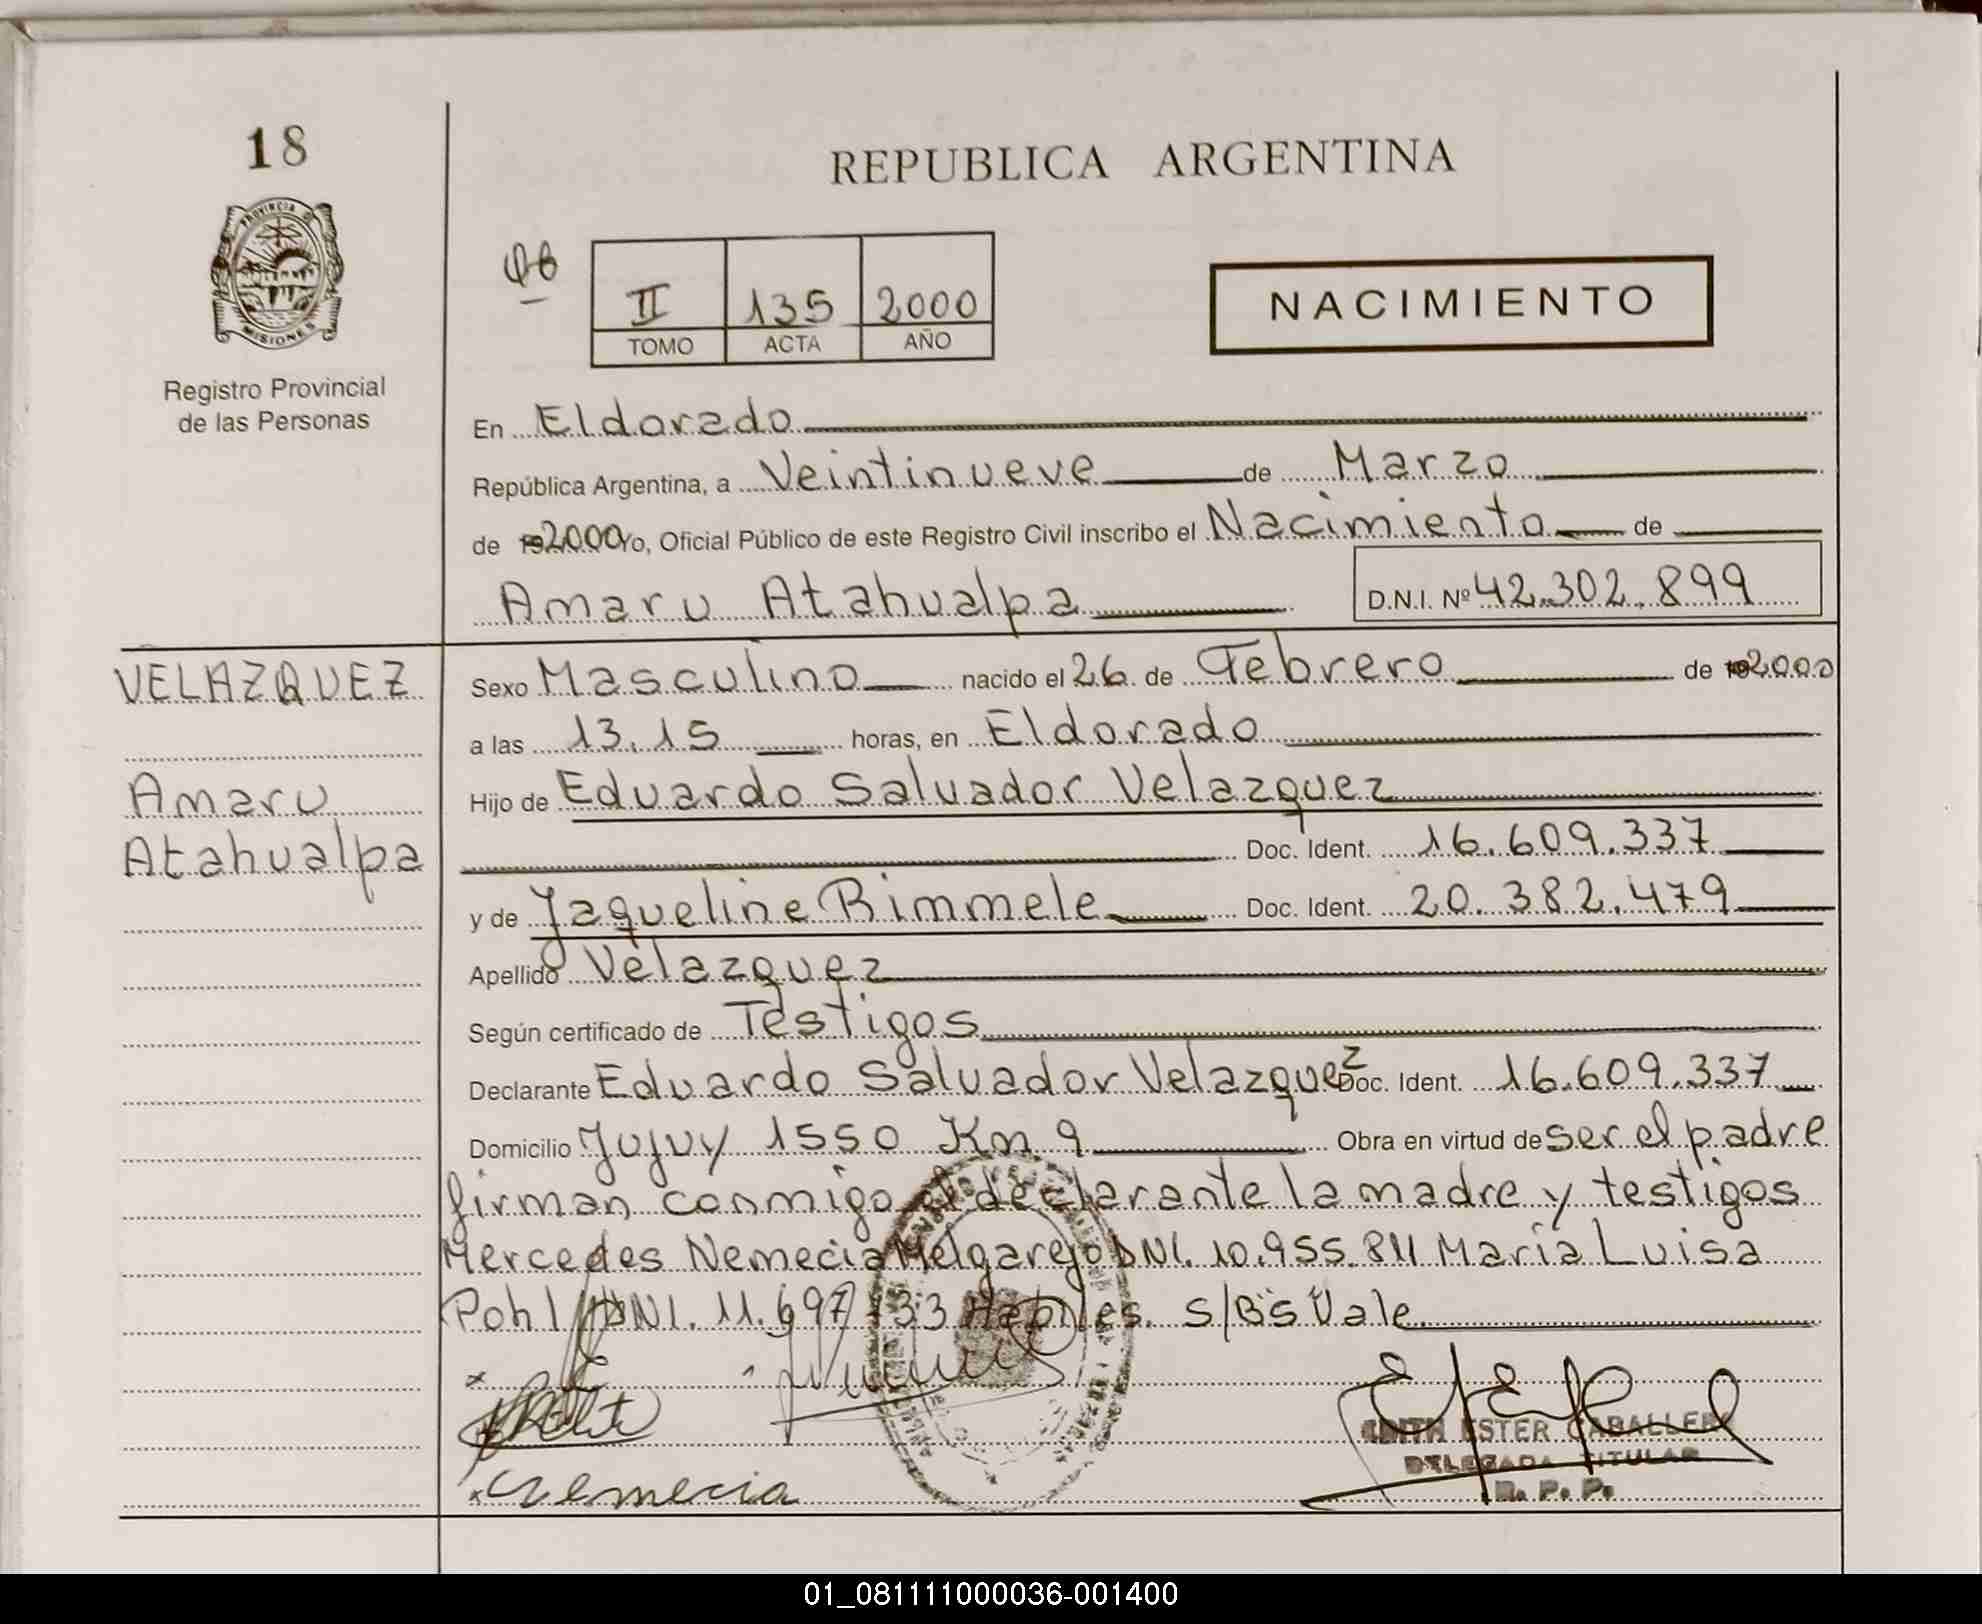 18
REPUBLICA ARGENTINA
PROVINCIA D
MISIONES
Registro Provincial
de las Personas
II 135 2000
TOMO ACTA AÑO
NACIMIENTO
En Eldorado
República Argentina, a Veintinueve de Marzo
de 192000 Yo, Oficial Público de este Registro Civil inscribo el Nacimiento de
Amaru Atahualpa D.N.I. Nº 42.302.899
VELAZQUEZ
Amaru
Atahualpa
Sexo Masculino nacido el 26 de Febrero de 192000
a las 13.15 horas, en Eldorado
Hijo de Eduardo Salvador Velazquez
Doc. Ident. 16.609.337
y de Jaqueline Rimmele Doc. Ident. 20.382.479
Apellido Velazquez
Según certificado de Testigos
Declarante Eduardo Salvador Velazquez Doc. Ident. 16.609.337
Domicilio Jujuy 1550 Km 9 Obra en virtud de ser el padre
firman conmigo el declarante la madre y testigos
Mercedes Nemecia Melgarejo DNI. 10.955.811 Maria Luisa
Pohl DNI. 11.697 33 Habiles. S/Bs Vale
Nemecia
EDITH ESTER CABALLERO
DELEGADA TITULAR
R. P. P.
01_081111000036-001400